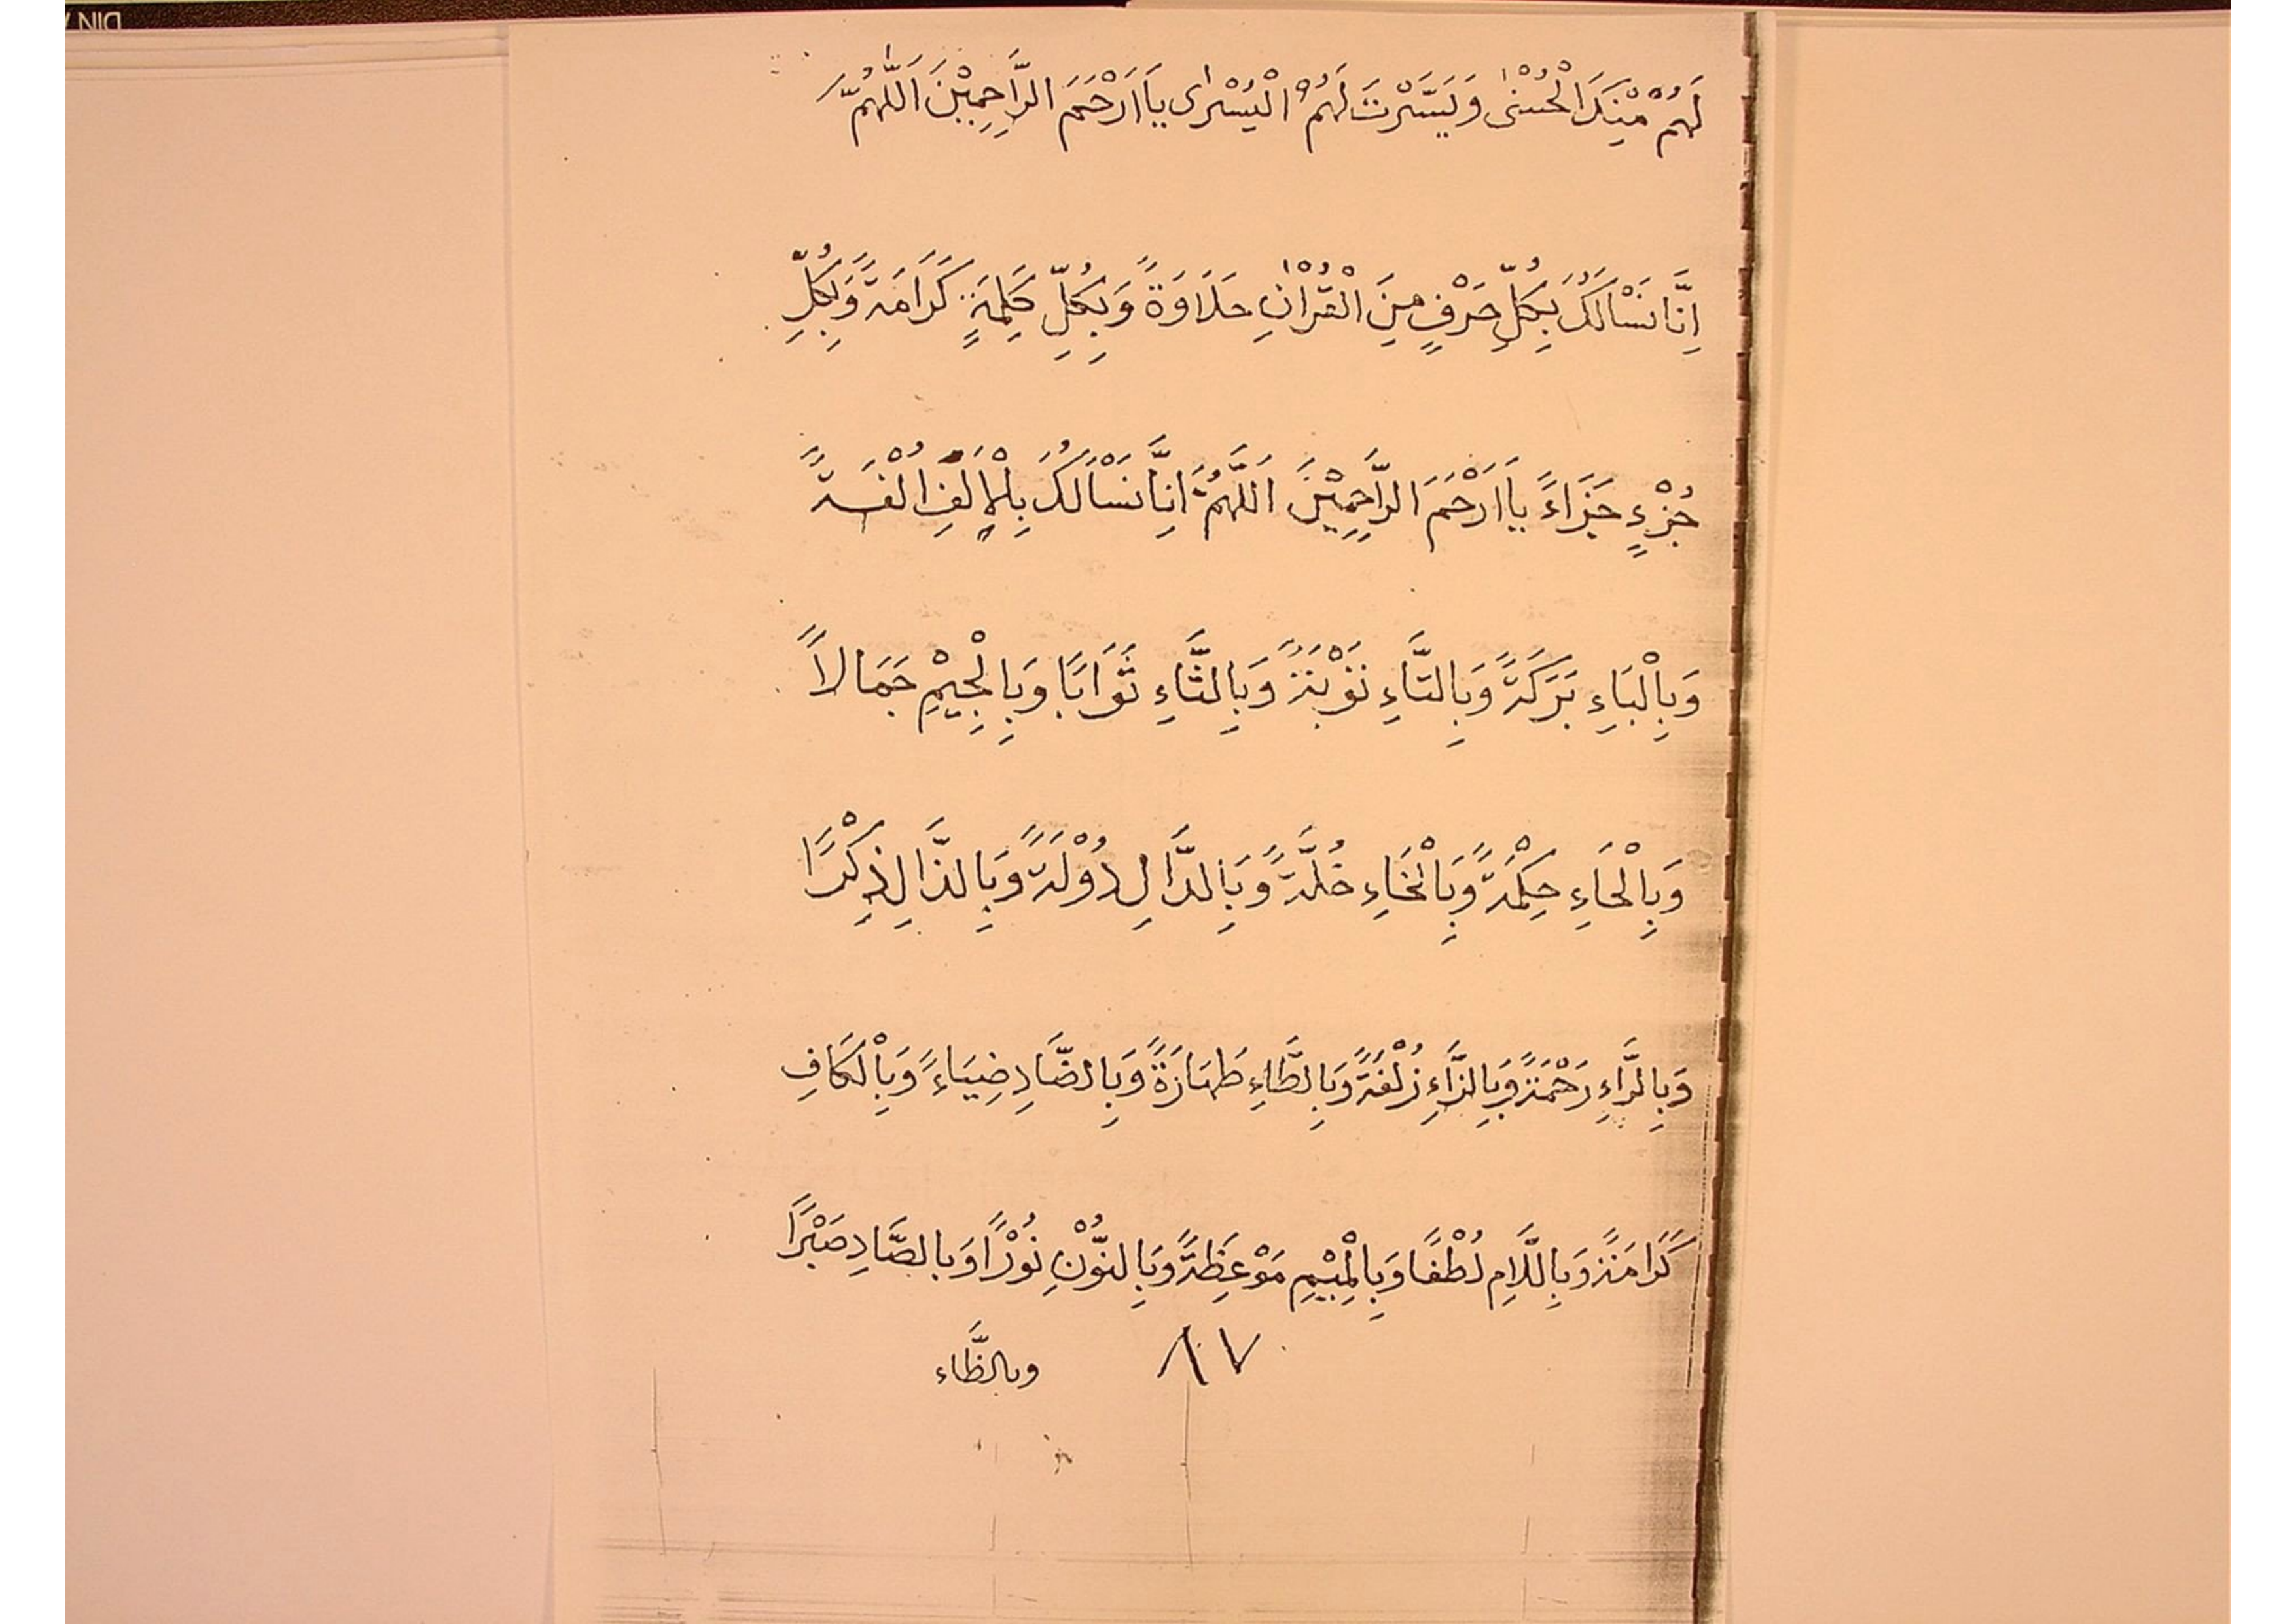 لَهُمْ مِنْكَ الْحُسْنٰى وَيَسَّرْتَ لَهُمُ الْيُسْرٰى يَا اَرْحَمَ الرَّاحِمِيْنَ اَللّٰهُمَّ
اِنَّا نَسْاَلُكَ بِكُلِّ حَرْفٍ مِنَ الْقُرْاٰنِ حَلَاوَةً وَبِكُلِّ كَلِمَةٍ كَرَامَةً وَبِكُلِّ
جُزْءٍ جَزَاءً يَا اَرْحَمَ الرَّاحِمِيْنَ اَللّٰهُمَّ اِنَّا نَسْاَلُكَ بِالْاَلِفِ اُلْفَةً
وَبِالْبَاءِ بَرَكَةً وَبِالتَّاءِ تَوْبَةً وَبِالثَّاءِ ثَوَابًا وَبِالْجِيْمِ جَمَالاً
وَبِالْحَاءِ حِكْمَةً وَبِالْخَاءِ خُلَّةً وَبِالدَّالِ دُوْلَةً وَبِالذَّالِ ذِكْرًا
وَبِالرَّاءِ رَحْمَةً وَبِالزَّاءِ زُلْفَةً وَبِالطَّاءِ طَهَارَةً وَبِالضَّادِ ضِيَاءً وَبِالْكَافِ
كَرَامَةً وَبِاللَّامِ لُطْفًا وَبِالْمِيْمِ مَوْعِظَةً وَبِالنُّوْنِ نُوْرًا وَبِالصَّادِ صَبْرًا
٨٧ وبالظَّاء
DIN